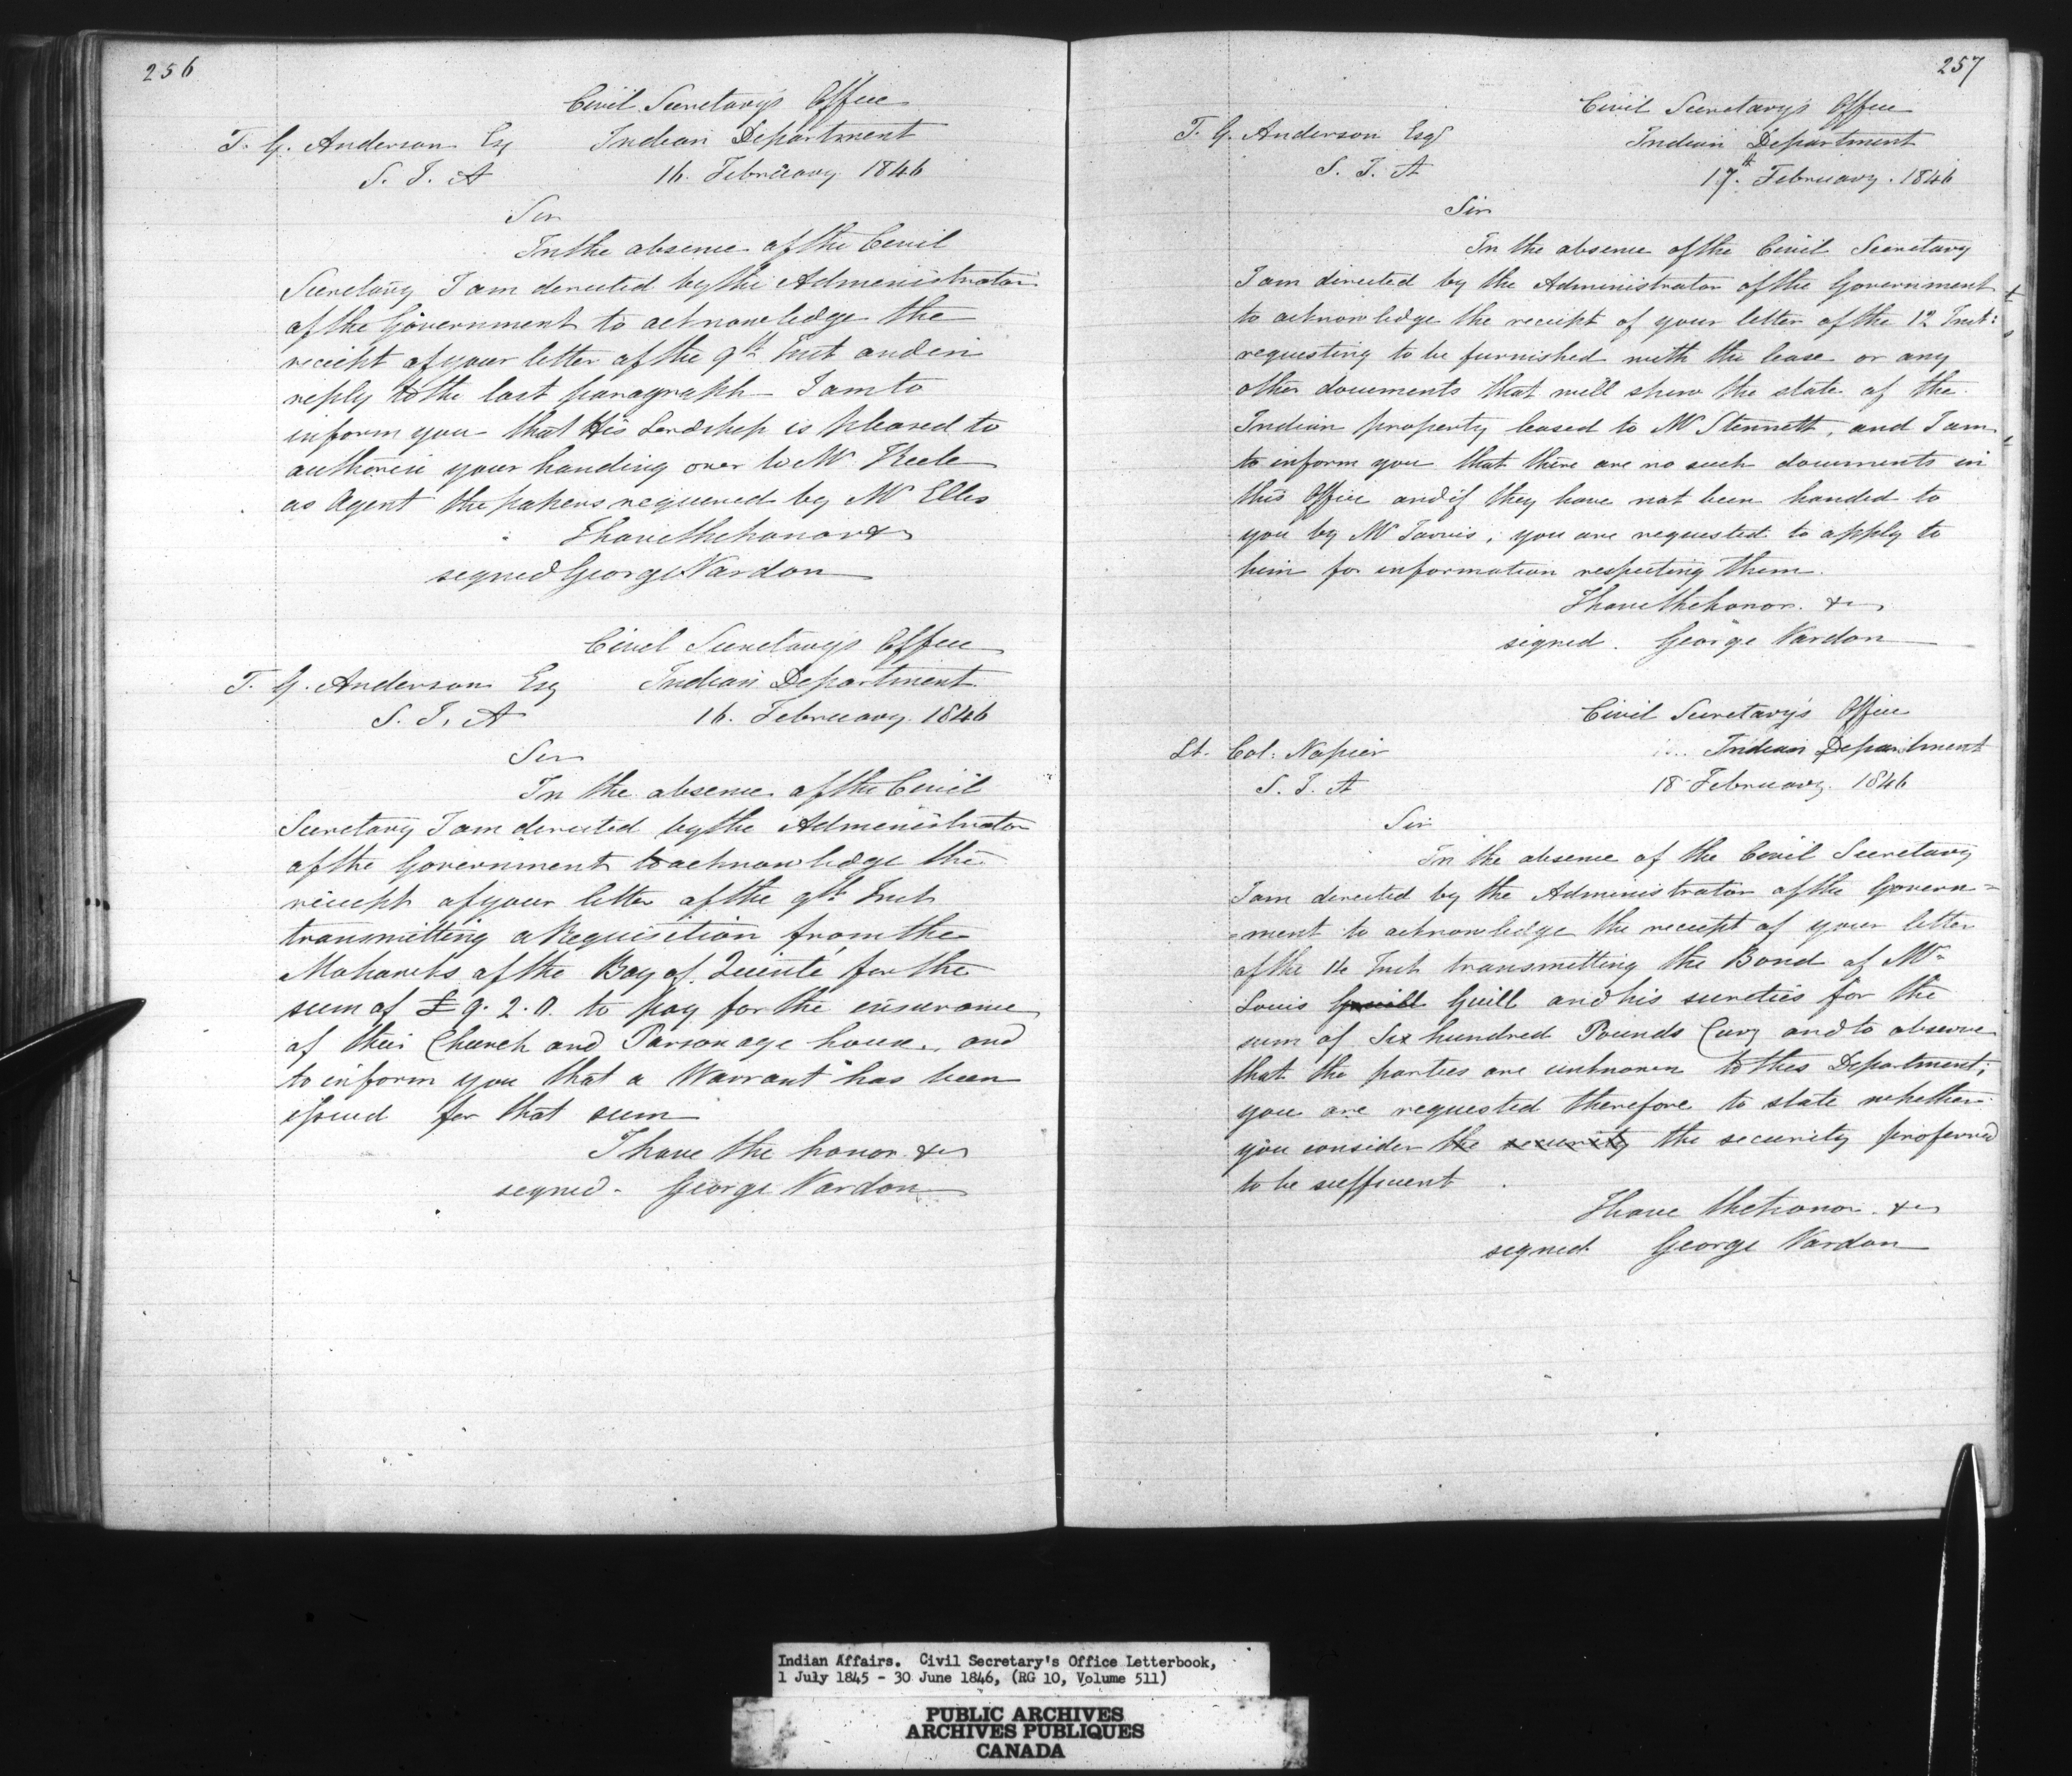 256
Civil Secretary's Office
T. G. Anderson Esq Indian Department
S. I. A 16. February 1846
Sir
In the absence of the Civil
Secretary I am directed by the Administrator
of the Government to acknowledge the
receipt of your letter of the 9th Inst and in
reply to the last paragraph I am to
inform you that His Lordship is pleased to
authorize your handing over to Mr Keele
as Agent the papers required by Mr Elles
I have the honor &c
signed George Vardon
Civil Secretary's Office
T. G. Anderson Esq Indian Department
S. I. A 16. February 1846
Sir
In the absence of the Civil
Secretary I am directed by the Administrator
of the Government to acknowledge the
receipt of your letter of the 9th Inst
transmitting a Requisition from the
Mohawks of the Bay of Quinté for the
sum of £9.2.0. to pay for the insurance
of their Church and Parsonage house, and
to inform you that a Warrant has been
issued for that sum
I have the honor &c
signed - George Vardon
257
Civil Secretary's Office
T. G. Anderson Esqr Indian Department
S. I. A 17th. February. 1846
Sir
In the absence of the Civil Secretary
I am directed by the Administrator of the Government
to acknowledge the receipt of your letter of the 12 Inst:
requesting to be furnished with the lease or any
other documents that will shew the state of the
Indian property leased to Mr Stennett, and I am
to inform you that there are no such documents in
this Office and if they have not been handed to
you by Mr Jarvis; you are requested to apply to
him for information respecting them.
I have the honor. &c
signed. George Vardon
Civil Secretary's Office
Lt. Col: Napier Indian Department
S. I. A 18 February. 1846
Sir
In the absence of the Civil Secretary
I am directed by the Administrator of the Govern=
=ment to acknowledge the receipt of your letter
of the 14 Inst transmitting the Bond of Mr
Louis Guill and his sureties for the
sum of Six hundred Pounds Curcy and to observe
that the parties are unknown to this Department;
you are requested therefore to state whether
you consider the security the security proferred
to be sufficient
I have the honor. &c
signed George Vardon
Indian Affairs. Civil Secretary's Office Letterbook,
1 July 1845 - 30 June 1846, (RG 10, Volume 511)
PUBLIC ARCHIVES
ARCHIVES PUBLIQUES
CANADA